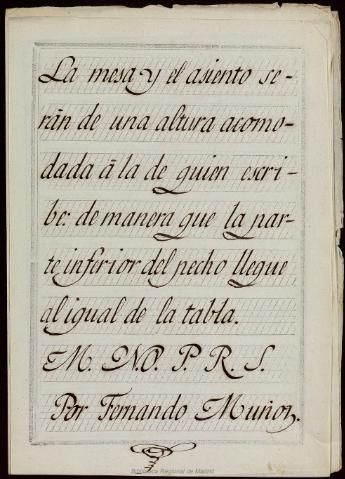 La mesa y el asiento se-
rān de una altura acomo-
dada ā la de quien escri-
be: de manera que la par-
te inferior del pecho llegue
al igual de la tabla.
M. N.O. P. R. S.
Por Fernando Muñoz.
Biblioteca Regional de Madrid